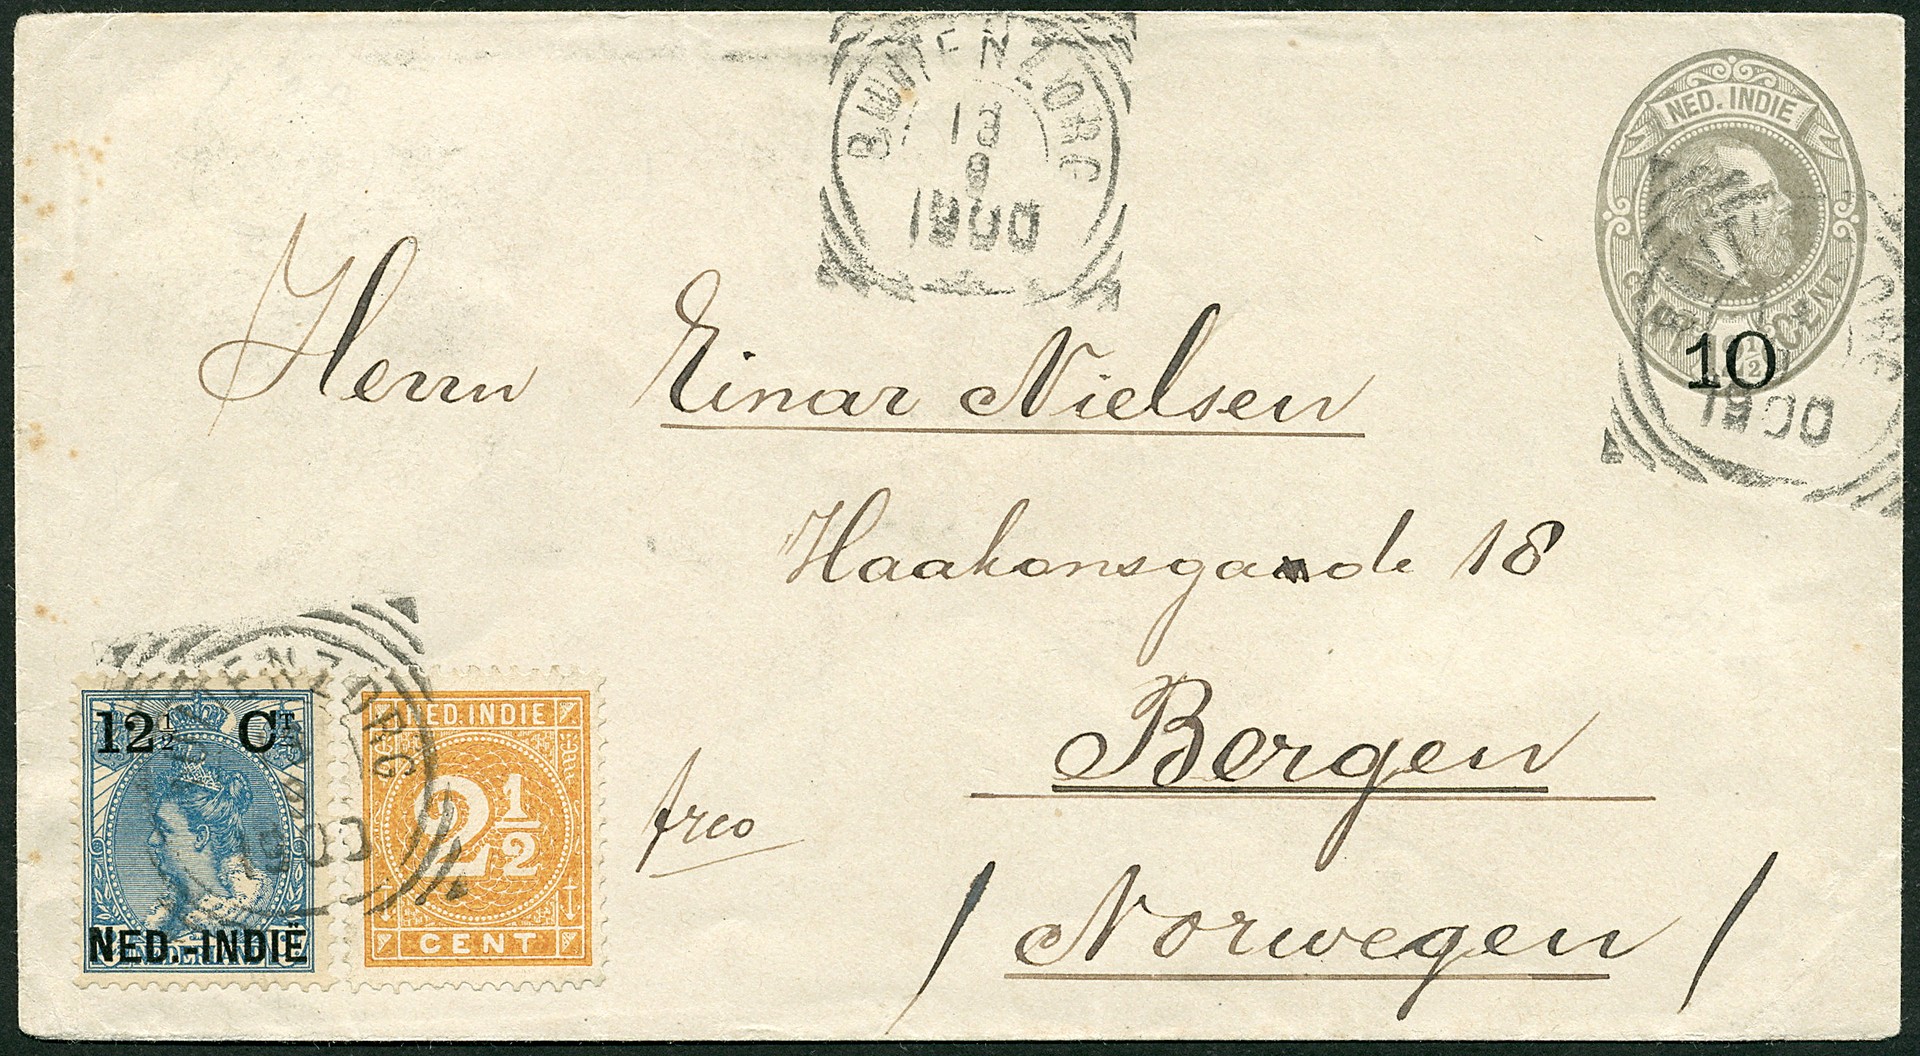 BUITENZORG
18
8
1900
NED. INDIE
CENT
10
1900
Herrn Einar Nielsen
Haakonsgade 18
Bergen
/ Norwegen /
frco
BUITENZORG
1900
12½ CT
NED.-INDIË
NED. INDIE
2½
CENT